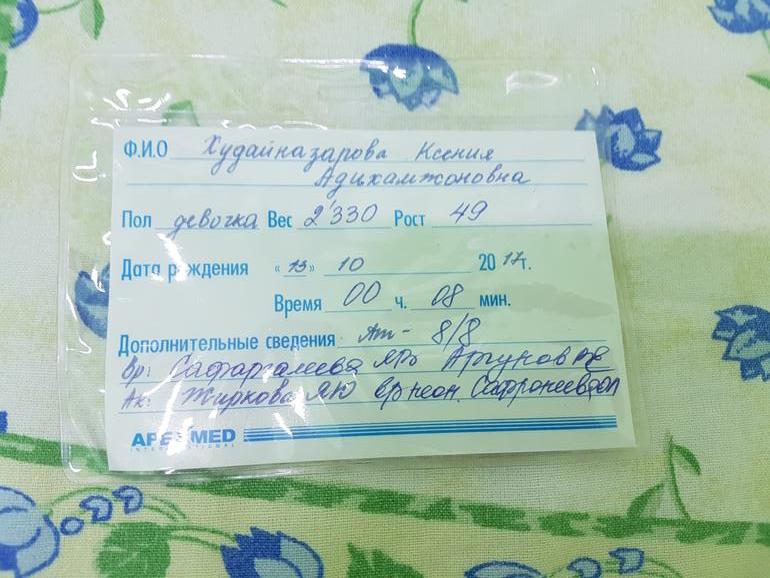 Ф.И.О Худайназарова Ксения
Адихамжоновна
Пол девочка Вес 2'330 Рост 49
Дата рождения «13» 10 2017г.
Время 00 ч. 08 мин.
Дополнительные сведения 8/8
Вр: Сафаргалеева Аргунов
Ак: Жиркова
APEXMED
INTERNATIONAL